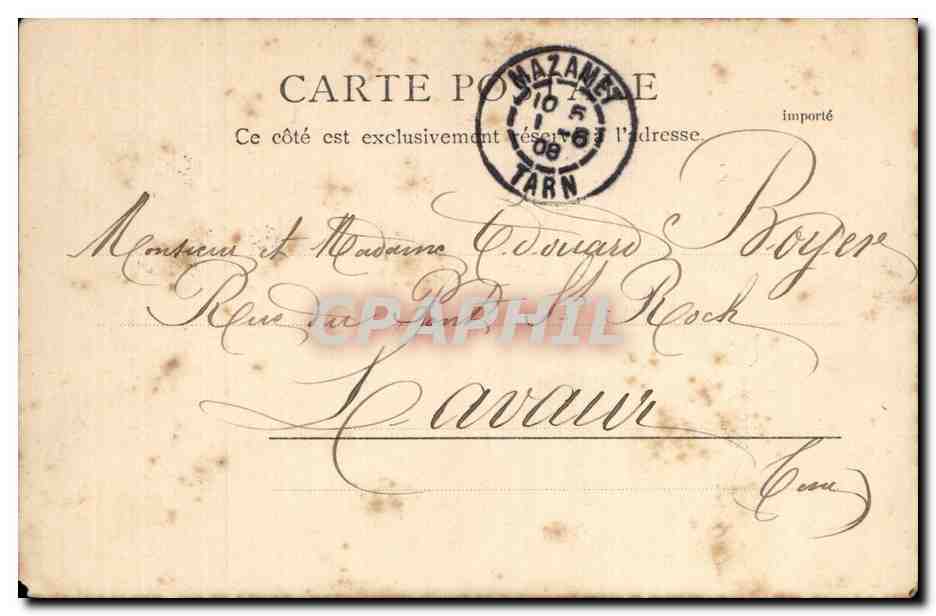 CARTE POSTALE
importé
Ce côté est exclusivement réservé à l'adresse.
MAZAMET
10 5
1 -6
08
TARN
Monsieur et Madame Edouard Boyer
Rue du Pont St Roch
Lavaur
Tarn
CPAPHIL